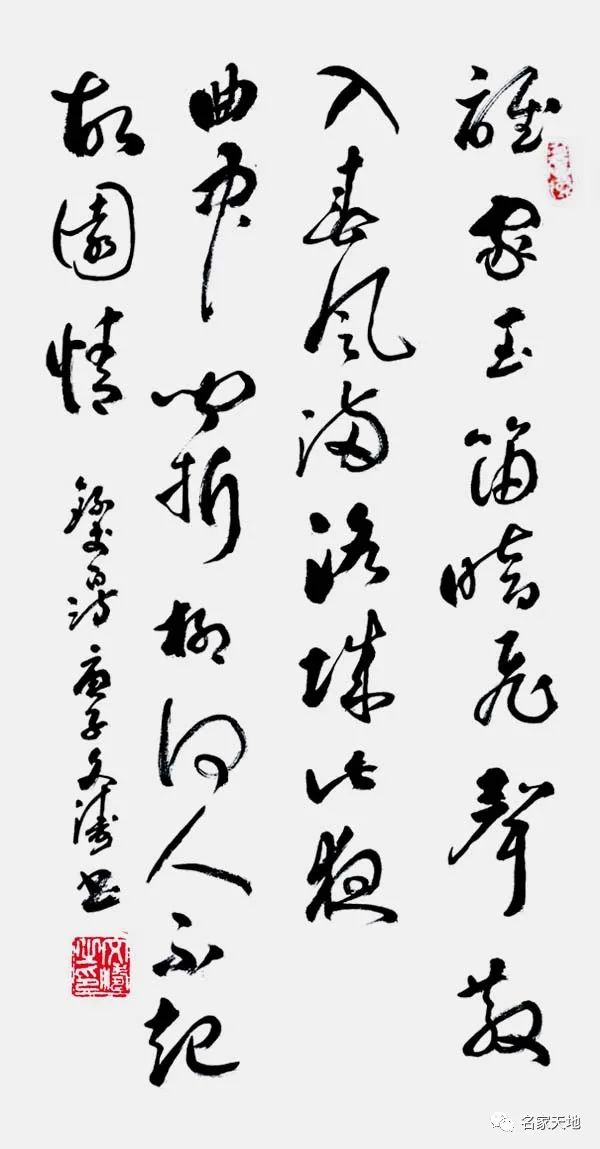 誰家玉笛暗飛聲散
入春風滿洛城此夜
曲中聞折柳何人不起
故園情
錄李白詩庚子文濤書
文濤之印
名家天地